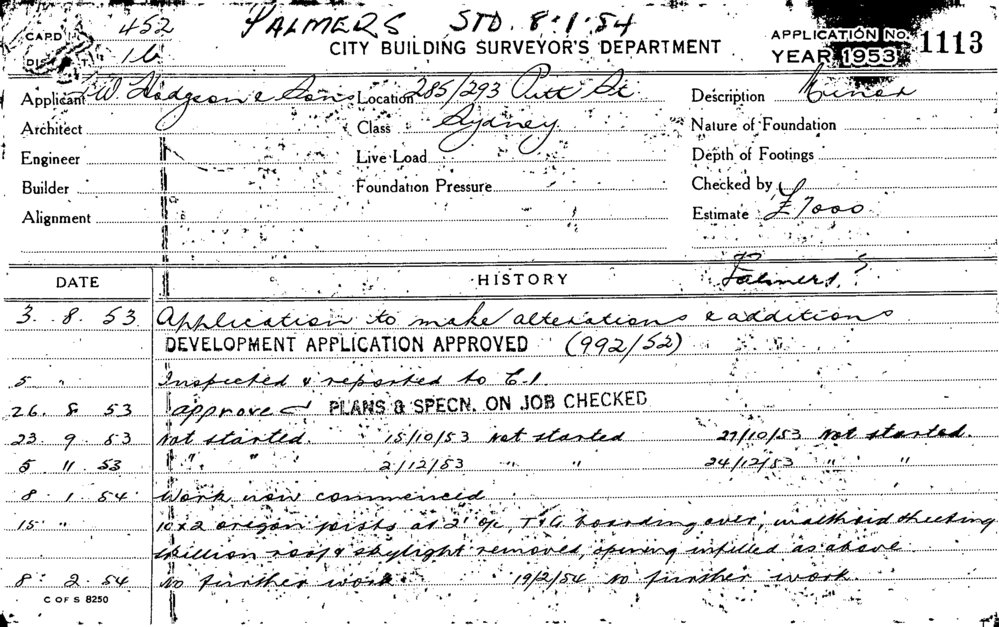 PALMERS STD. 8.1.54
CARD 452
CITY BUILDING SURVEYOR'S DEPARTMENT
APPLICATION NO. 1113
YEAR 1953
DIS 16
Applicant W. Hodgson & Sons Location 285/293 Pitt St. Description Minor
Architect Class Sydney Nature of Foundation
Engineer Live Load Depth of Footings
Builder Foundation Pressure Checked by
Alignment Estimate £7000
DATE HISTORY Palmers.
3. 8. 53 Application to make alterations & additions
DEVELOPMENT APPLICATION APPROVED (992/52)
5 " Inspected & reported to C.I.
26. 8 53 approved PLANS & SPECN. ON JOB CHECKED
23. 9. 53 Not started. 15/10/53 not started 27/10/53 not started.
5 11 53 " " 2/12/53 " " 24/12/53 " "
8. 1. 54. Work now commenced
15. " 10x2 oregon joists at 2' o/c T&G boarding over, malthoid sheeting
skillion roof & skylight removed, opening infilled as above
8. 2. 54 No further work. 19/2/54 No further work.
C OF S 8250